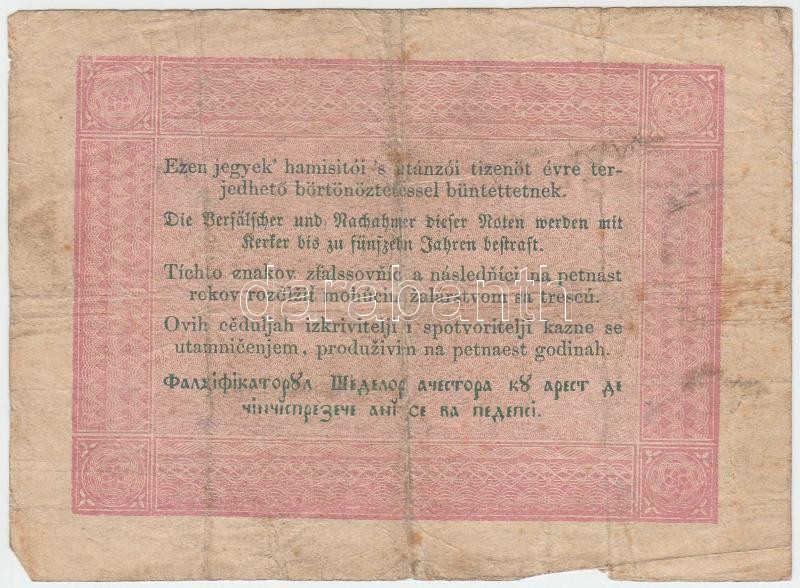 Ezen jegyek' hamisitói 's utánzói tizenöt évre ter-
jedhető börtönöztetéssel büntettetnek.
Die Verfälscher und Nachahmer dieser Noten werden mit
Kerker bis zu fünfzehn Jahren bestraft.
Tíchto znakov zfalssovňíc a následňíci na petnást
rokov rozťížiť mohúcím žalárstvom sa trescú.
Ovih cěduljah izkrivitelji i spotvoritelji kazne se
utamničenjem, produživim na petnaest godinah.
Фалꙁіфікаторꙋл Шеделор ачестора кꙋ арест де
чінчіспреꙁече анї се ва педепсі.
darabanth